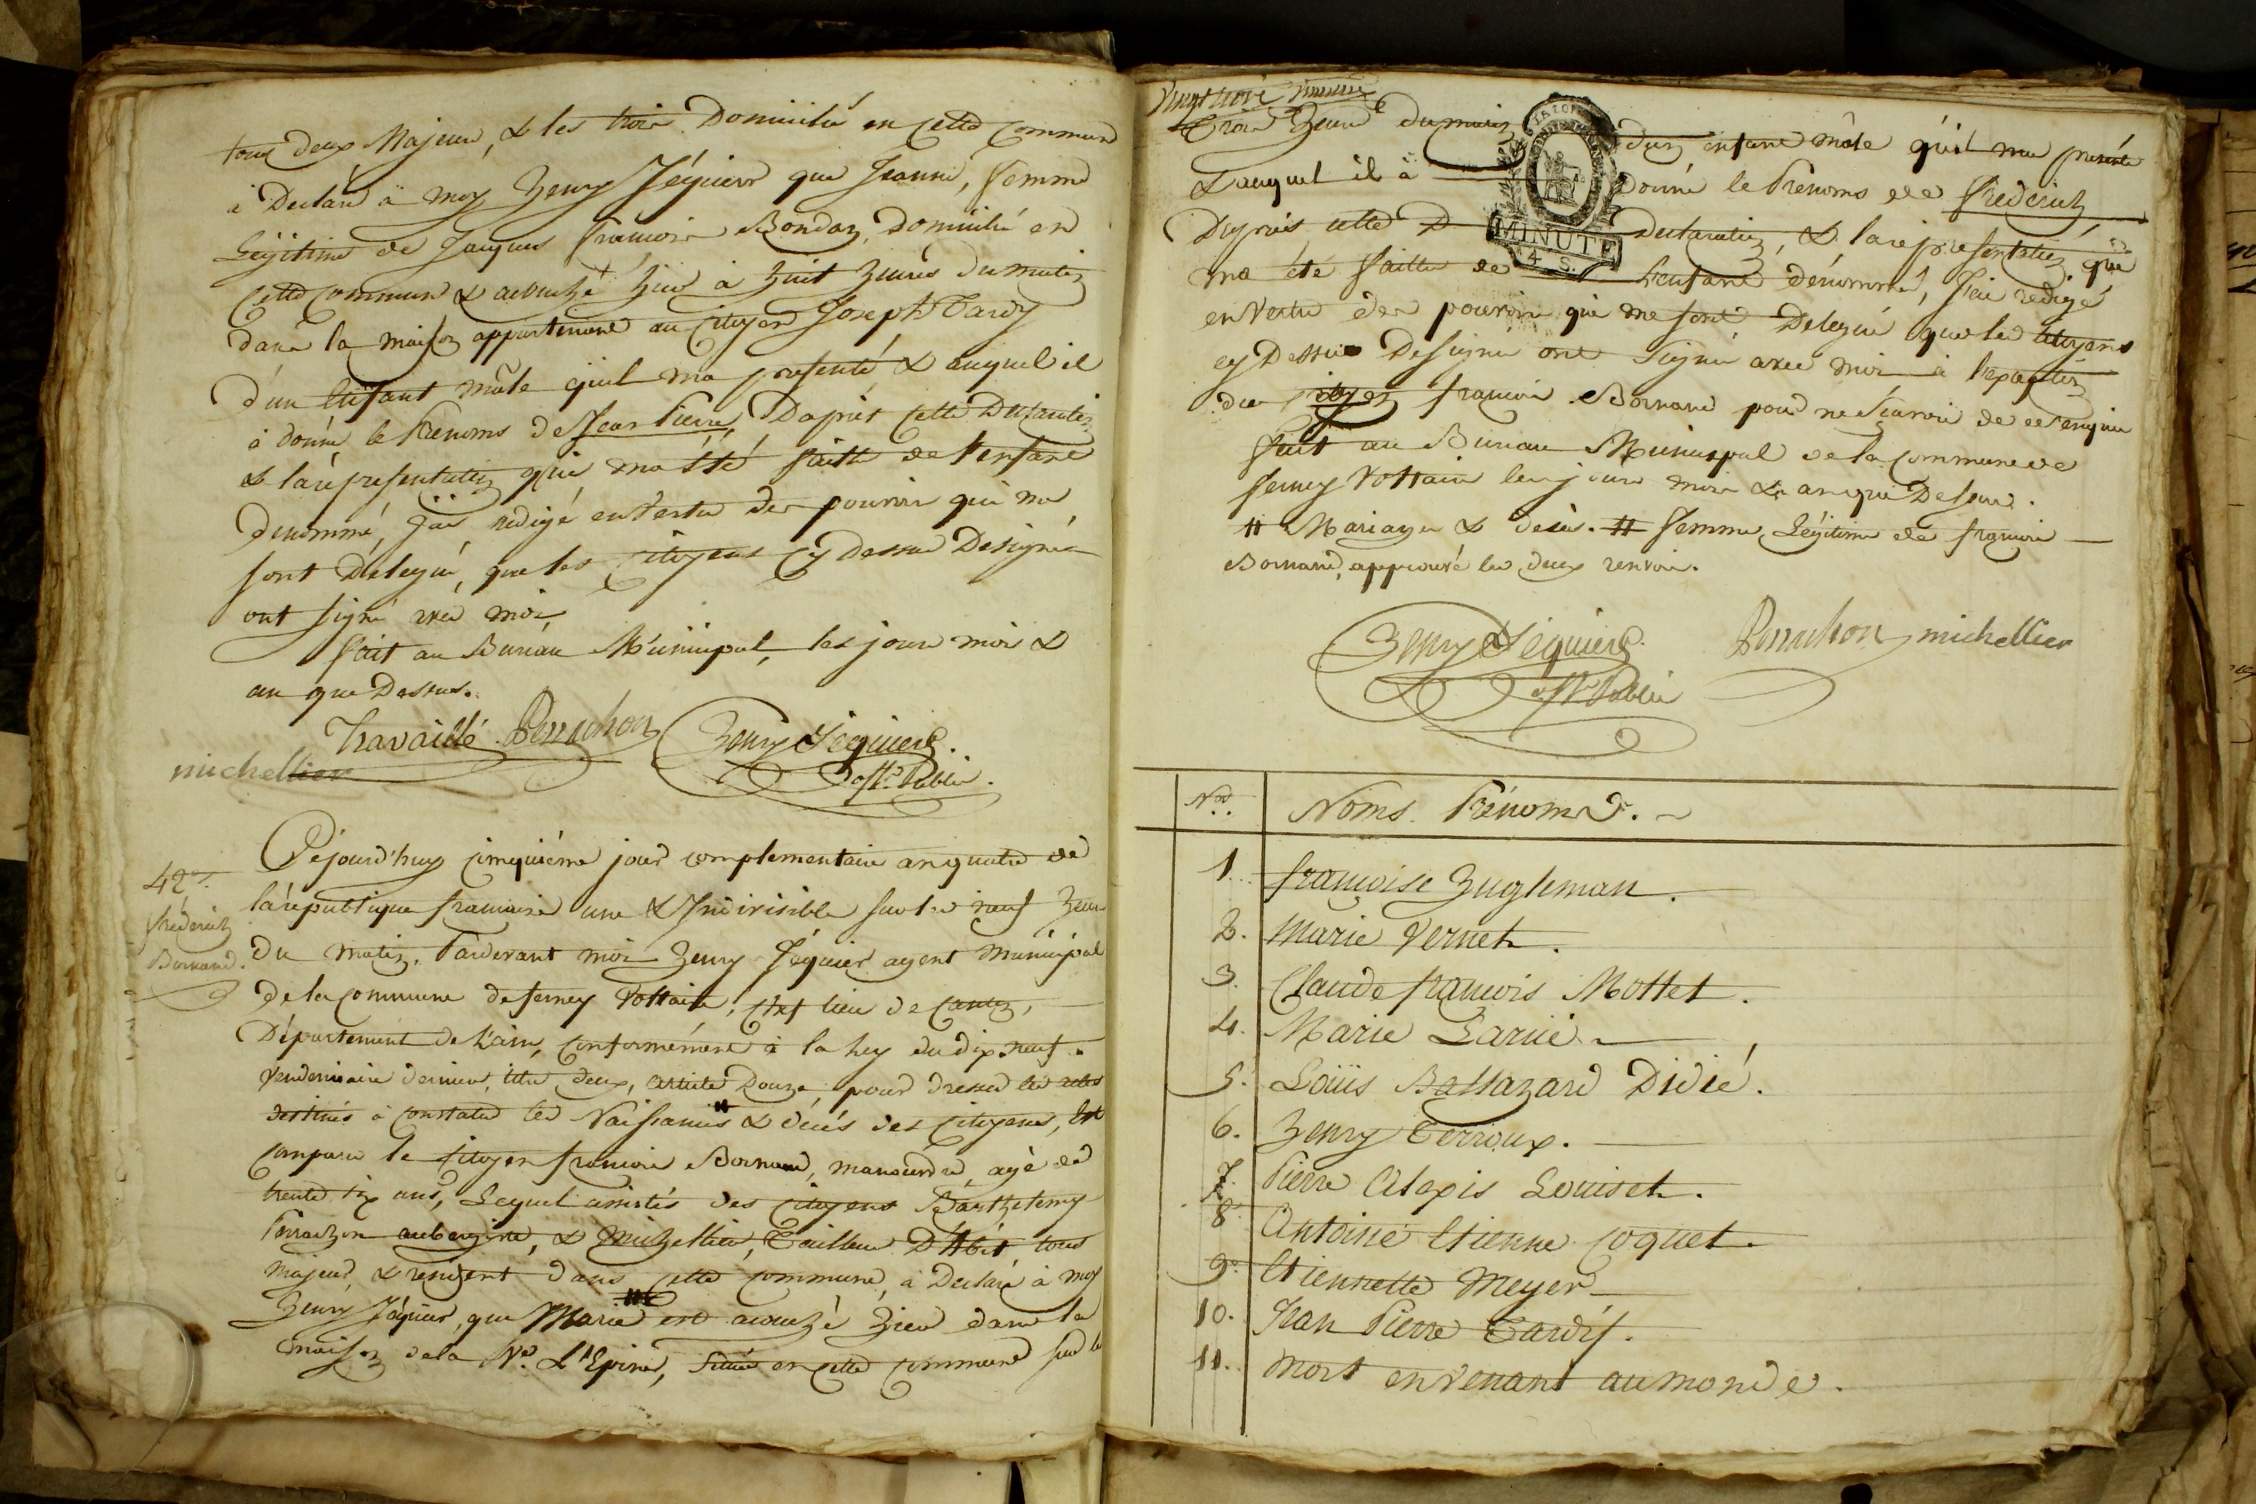 tous deux Majeurs, & les trois Domicilié en cette Commune
à Declaré à moy Henry Jéquier que Jeanne, femme
Légitime de Jacques François Bondaz, Domicilié en
Cette Commune & acouché hier à huit heures du matin
dans la maison appartenant au Citoyen Joseph Tardy
d'un Enfant mâle qu'il ma présenté & auquel il
à donné le Prenoms de Jean Pierre, Daprès cette Declaration
& la représentation qui ma étté faitte de l'enfant
denommé, j'ai redigé en Vertu des pouvoir qui me
sont Délégué, que les Citoyens Cy Dessus Designés
ont signé avec moi
fait au Bureau Municipal, les jour mois &
an que Dessus.
Travaillé Perrachon Henry Jéquier
michellier offr. Public.
42e.
frédérich
Bornand.
Cejourd'huy cinquiéme jour complementaire an quatre de
la république françaisé une & Indivisible sur les neuf heures
du matin, Pardevant moi Henry Jéquier agent Municipal
de la Commune de ferney Voltaire, Chef lieu de Canton,
Département de L'ain, Conformément à la Loy du dix neuf
Vendemiaire dernier, titre deux, article Douze, pour dresser les actes
destinés à Constater les Naissances # & décés des Citoyens, Est
Comparu le Citoyen François Bornand, manoeuvre, agé de
trente six ans, Lequel assistés des Citoyens Barthelemy
Perrachon aubergiste, & Michellier, Tailleur D'Abit tous
majeur, & resident dans cette Commune, à Declaré à moy
Henry Jéquier, que Marie # est acouché hier dans la
maison de la Ve. L'Epine, Située en cette Commune sur les
Vingt trois
Trois heure du matin d'un enfant mâle qu'il ma presenté
& auquel il à donné le Prénoms de Frederich
D'après cette D Declaration, & la representation qui
ma été faitte de L'enfant dénommé, J'ai redigé
en Vertu des pouvoir qui me sont Delegué que les Citoyens
cy Dessus Designé ont signé avec moi à l'exeption
du Citoyen François Bornand pour ne sçavoir de ce enquis
fait au Bureau Municipal de la Commune de
ferney Voltaire les jours mois & an que Dessus.
# Mariages & décès. # femme Légitime de François
Bornand, approuvé les deux renvois.
Henry Jéquier Perrachon michellier
offr. Public
MINUTE
4. S.
Nos. Noms. Prénoms.
1. françoise Hugleman.
2. Marie Vernet.
3. Claude françois Mottet.
4. Marie Larue
5. Loüis Balthazard Didié.
6. Henry Terroux.
7. Pierre Alexis Louiset.
8. Antoine Etienne Coquet.
9. Etiennette Meyer
10. Jean Pierre Tardif.
11. Mort en venant au monde.